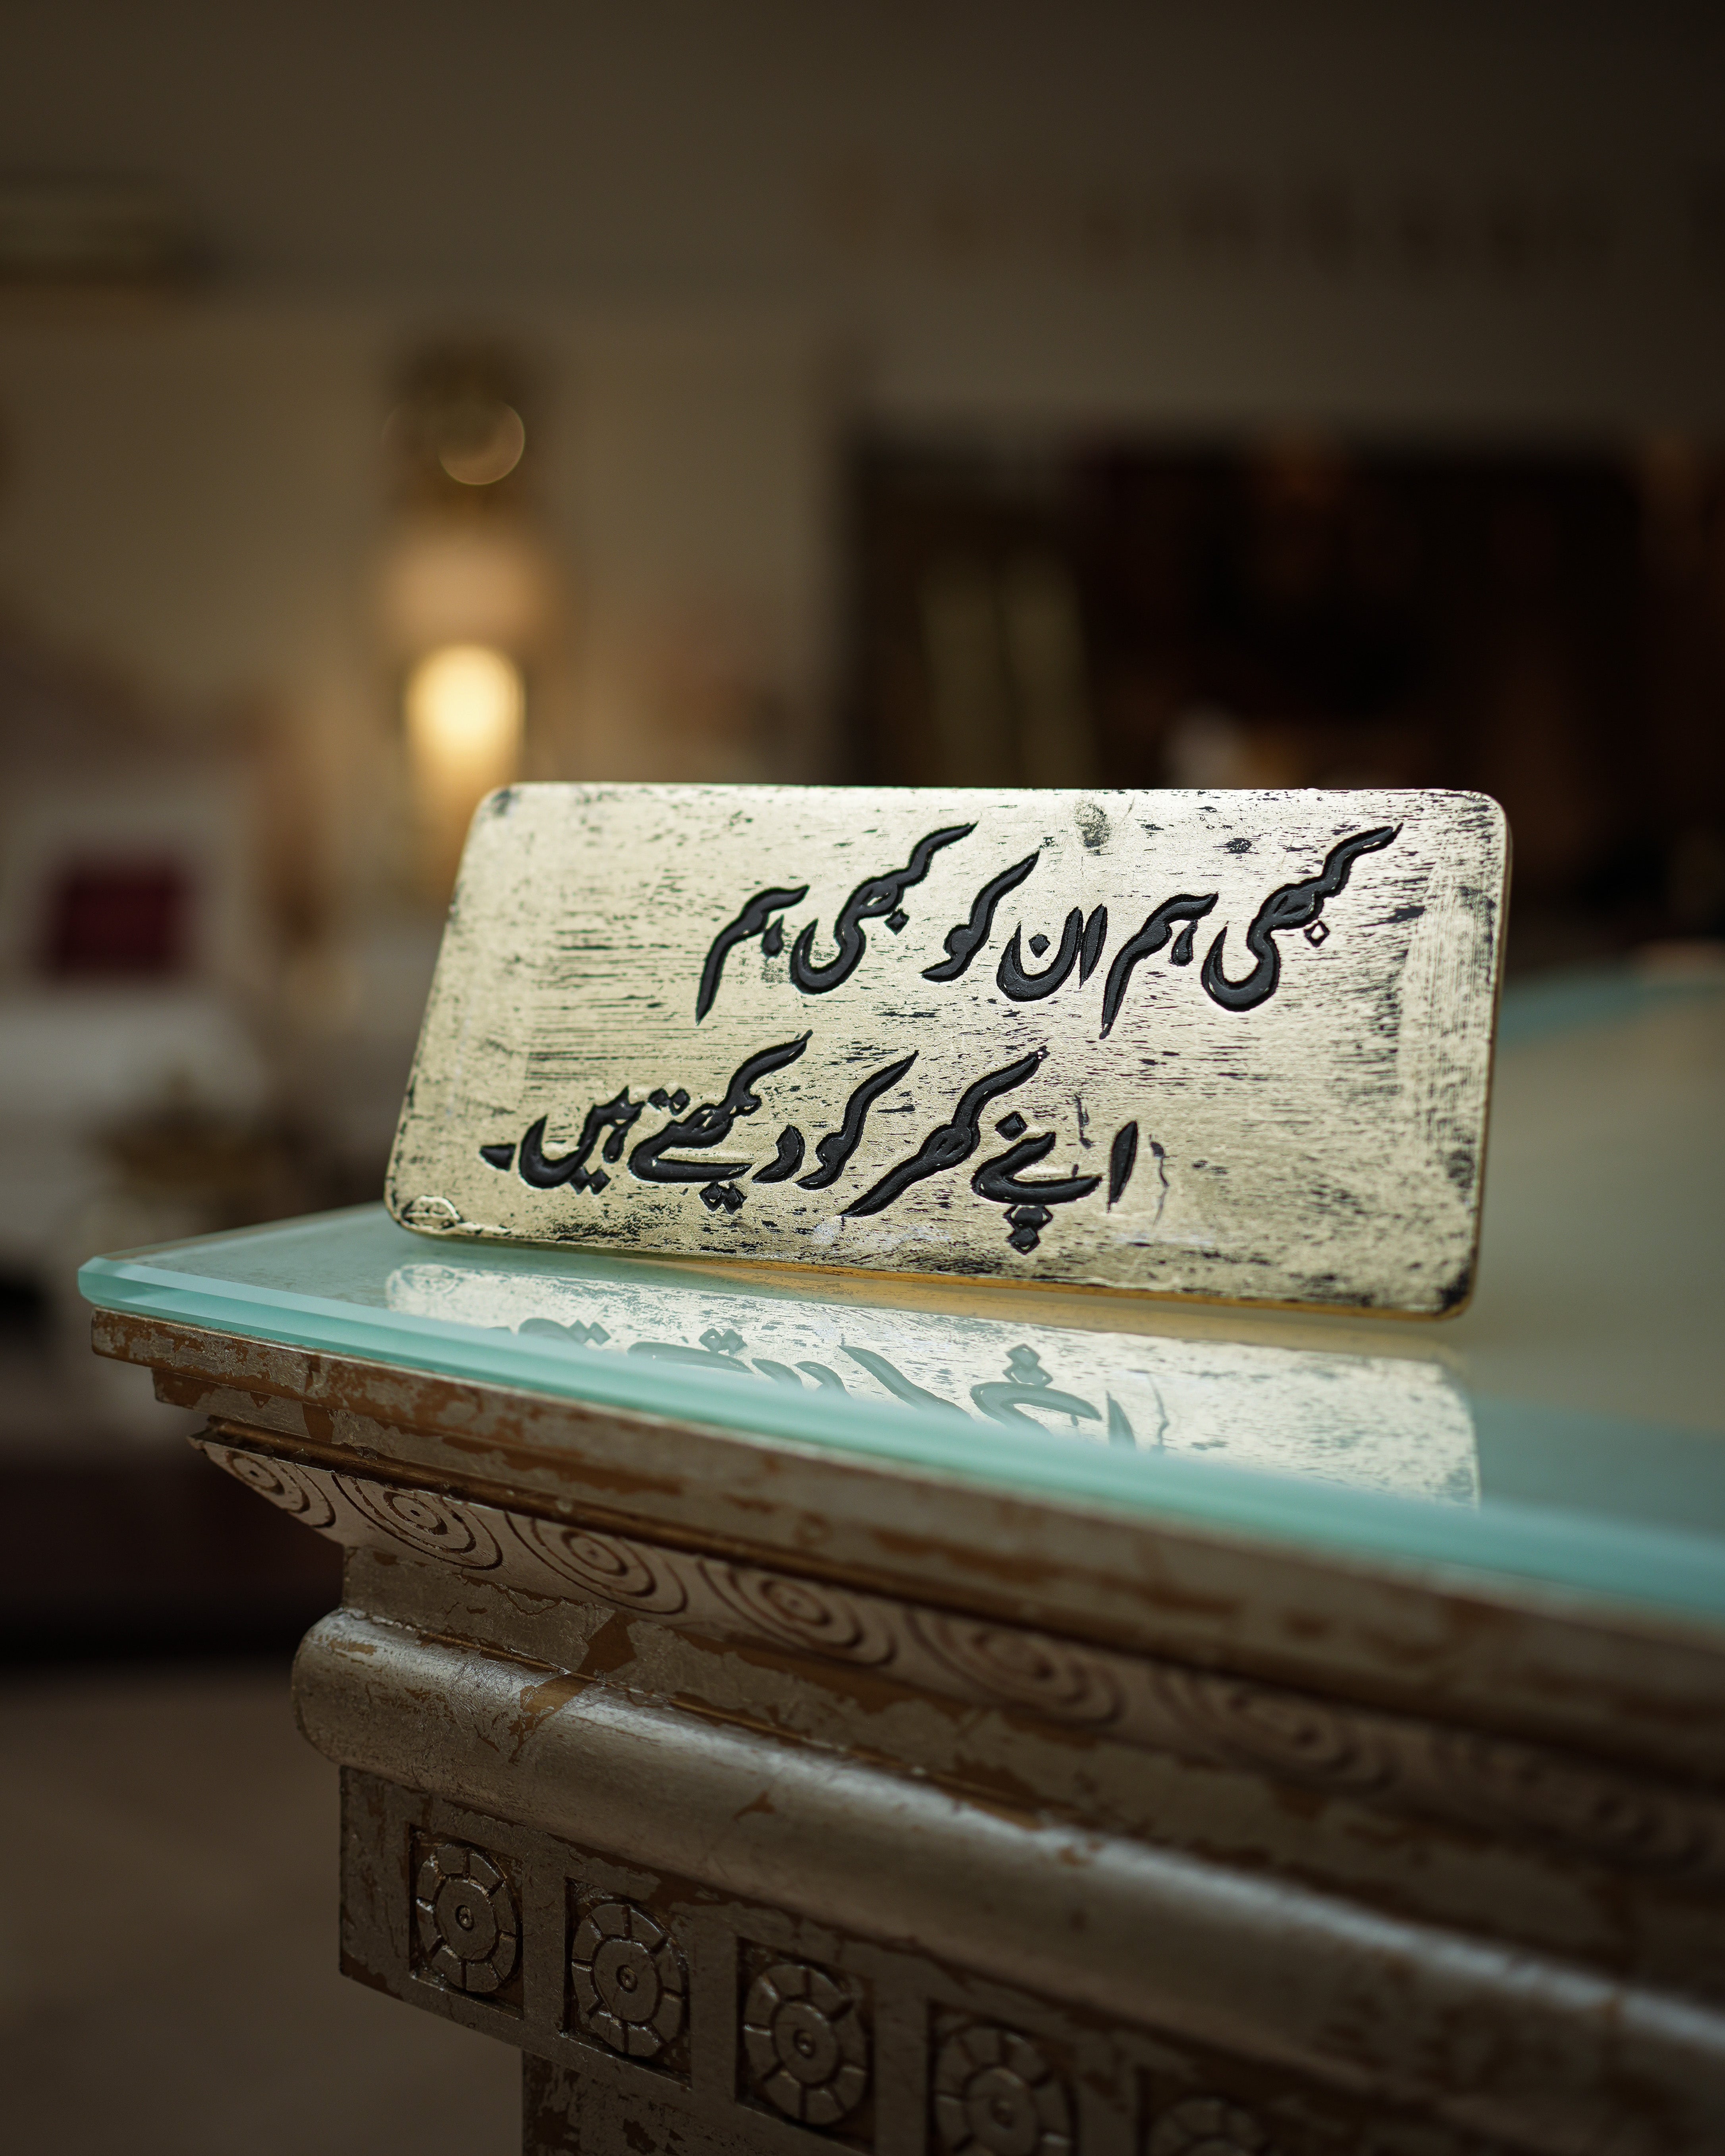 کبھی ہم ان کو کبھی ہم
اپنے گھر کو دیکھتے ہیں۔